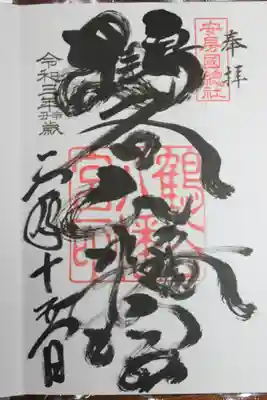 奉拝
安房國總社
鶴谷八幡宮
鶴谷八幡宮之印
令和三年歳
二月十日